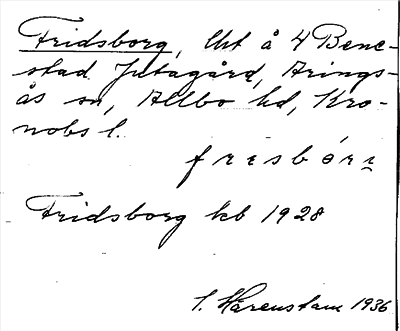 Fridsborg, lht å 4 Bene-
stad Jutagård, Arings-
ås sn, Allbo hd, Kro-
nobs l.
frisbórı
Fridsborg kb 1928
S. Hårenstam 1936